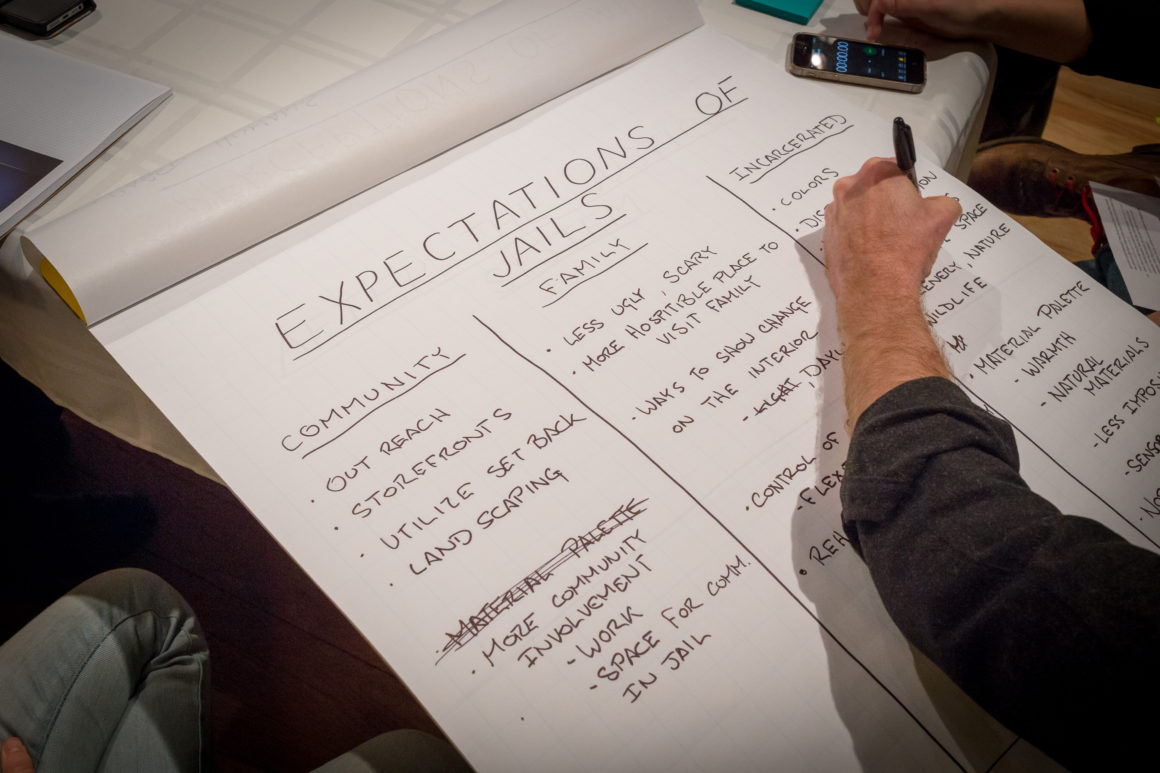 EXPECTATIONS OF
JAILS
COMMUNITY
• OUT REACH
• STOREFRONTS
• UTILIZE SET BACK
• LAND SCAPING
• MATERIAL PALETTE
• MORE COMMUNITY
INVOLVEMENT
- WORK
- SPACE FOR COMM.
IN JAIL
FAMILY
• LESS UGLY, SCARY
• MORE HOSPITIBLE PLACE TO
VISIT FAMILY
• WAYS TO SHOW CHANGE
ON THE INTERIOR
- LIGHT,
• CONTROL OF
INCARCERATED
• COLORS
SPACE
NATURE
• MATERIAL PALETTE
- WARMTH
- NATURAL
MATERIALS
- LESS
00:00.00